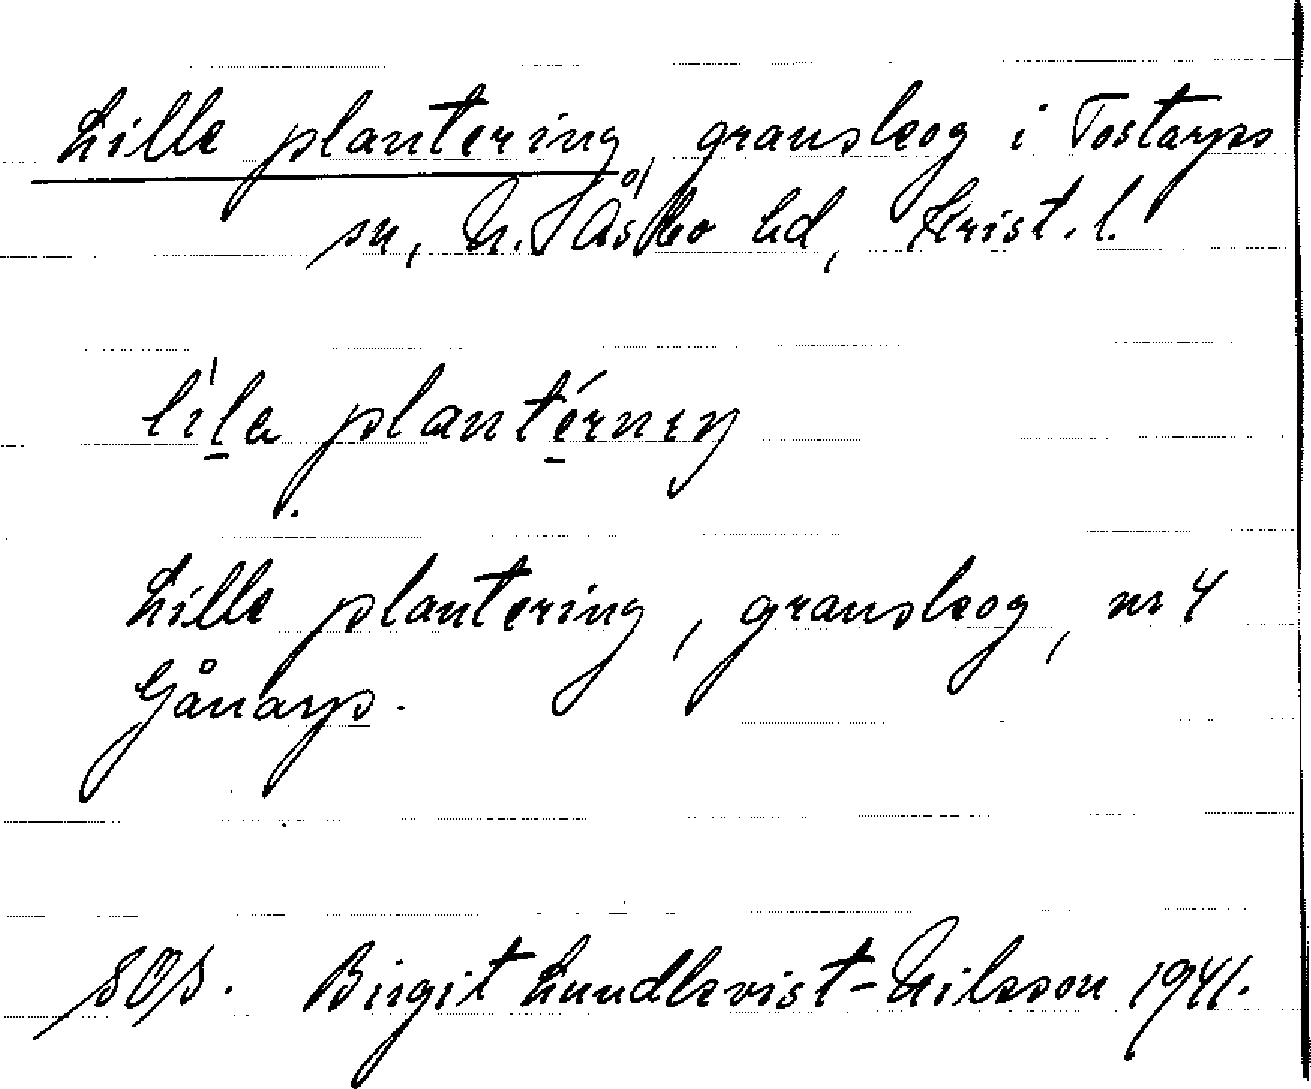 Lille plantering, granskog i Tostarps
sn, N. Åsbo hd, Krist. l.
lìla plantérnıŋ
Lille plantering, granskog, nr 4
Gånarp.
SOS. Birgit Lundkvist-Nilsson 1941.